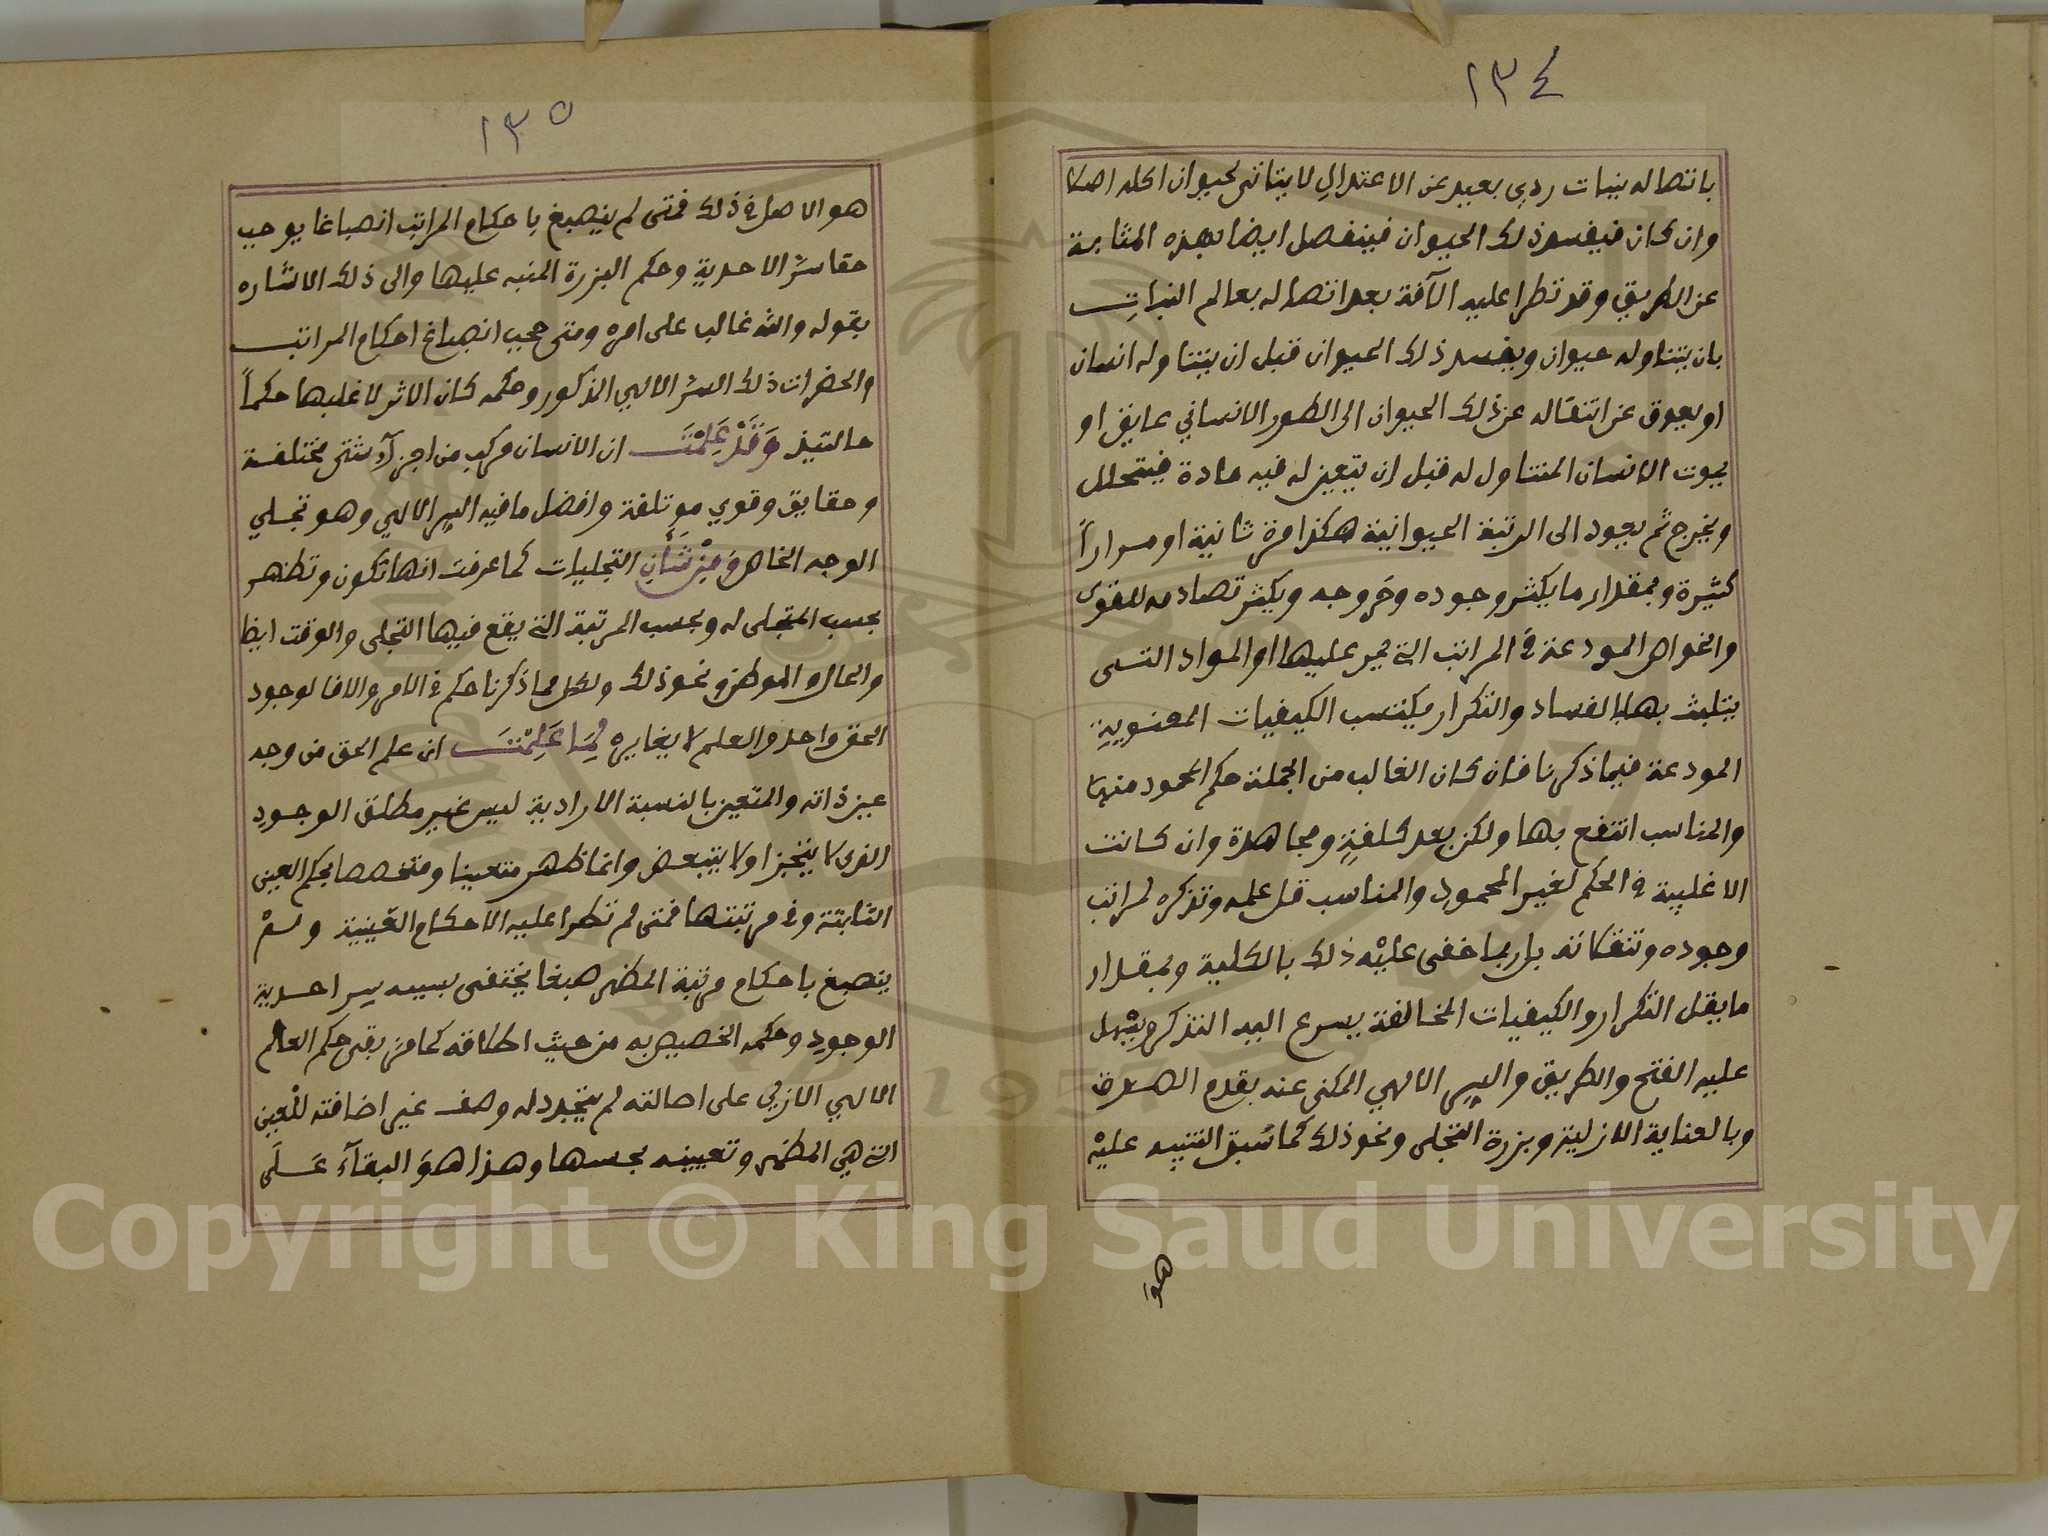 ١٣٤
باتصاله بنبات ردي بعيد عن الاعتدال لا يتاتى لحيوان اكله اصلا
وان كان فيفسد ذلك الحيوان فينفصل ايضا بهذه المثابة
عن الطريق وقد تطرا عليه الآفة بعد اتصاله بعالم النبات
بان يتناوله حيوان ويفسد ذلك الحيوان قبل ان يتناوله انسان
او يعوق عن انتقاله عن ذلك الحيوان الى الطور الانساني عايق او
يموت الانسان المتناول له قبل ان يتعين له فيه مادة فيتحلل
ويخرج ثم يعود الى الرتبة الحيوانية هكذا مرة ثانية او مرارا
كثيرة وبمقدار ما يكثر وجوده وخروجه ويكثر تصادمه للقوى
والخواص المودعة في المراتب التي يمر عليها او المواد التى
يتلبث بها بالفساد والتكرار يكتسب الكيفيات المعنوية
المودعة فيما ذكرنا فان كان الغالب من الجملة حكم المحمود منها
والمناسب انتفع بها ولكن بعد كلفةٍ ومجاهدة وان كانت
الاغلبية في الحكم لغير المحمود والمناسب قل علمه وتذكره لمراتب
وجوده وتنقلاته بل ربما خفى عليْه ذلك بالكلية وبمقدار
ما يقل التكرار والكيفيات المخالفة يسرع اليه التذكر ويسْهل
عليه الفتح والطريق والسر الالهي المكنى عنه بقدم الصدق
وبالعناية الازلية وبزرة التجلى ونحو ذلك كما سَبق التنبيه عليْه
هوَ
١٣٥
هو الاصل في ذلك فمتى لم ينصبغ باحكام المراتب انصباغا يوجب
خفا سرّ الاحدية وحكم البزرة المنبه عليها والى ذلك الاشاره
بقوله والله غالب على امره ومتى حجب انصباغ احكام المراتب
والحضرات ذلك السرّ الالهي المذكور وحكمه كان الاثر لاغلبها حكماً
حالتيذ وَقَدْ عَلِمْتَ ان الانسان مركب من اجزآء شتى مختلفة
وحقايق وقوي موتلفة وافضل ما فيه السر الالهي وهو تجلي
الوجه الخاص وَمِنْ شَأْنِ التجليات كما عرفت انها تكون وتظهر
بحسب المتجلى له وبحسب المرتبة التي يقع فيها التجلى والوقت ايضا
والحال والموطن ونحو ذلك ولكل مما ذكرنا حكم في الامر والا فالوجود
الحق واحد والعلم لا يغايره لِمَا عَلِمْتَ ان علم الحق من وجه
عين ذاته والمتعين بالنسبة الارادية ليس غير مطلق الوجود
الذى لا يتجزا ولا يتبعض وانما ظهر متعينا ومتخصصا بحكم العين
الثابتة وفي مرتبتها فمتى لم تطرا عليه الاحكام العَينية ولمْ
ينصبغ باحكام مرتبة المظهر صبغا يختفى بسببه سر احدية
الوجود وحكمه الخصيص به من حيث اطلاقه كما مر بقى حكم العلم
الالهي الازلي على اصالته لم يتجدد له وصف غير اضافته للْعين
التي هي المظهر وتعيينه بحسبها وهذا هوَ البقآء عَلَى
Copyright © King Saud University